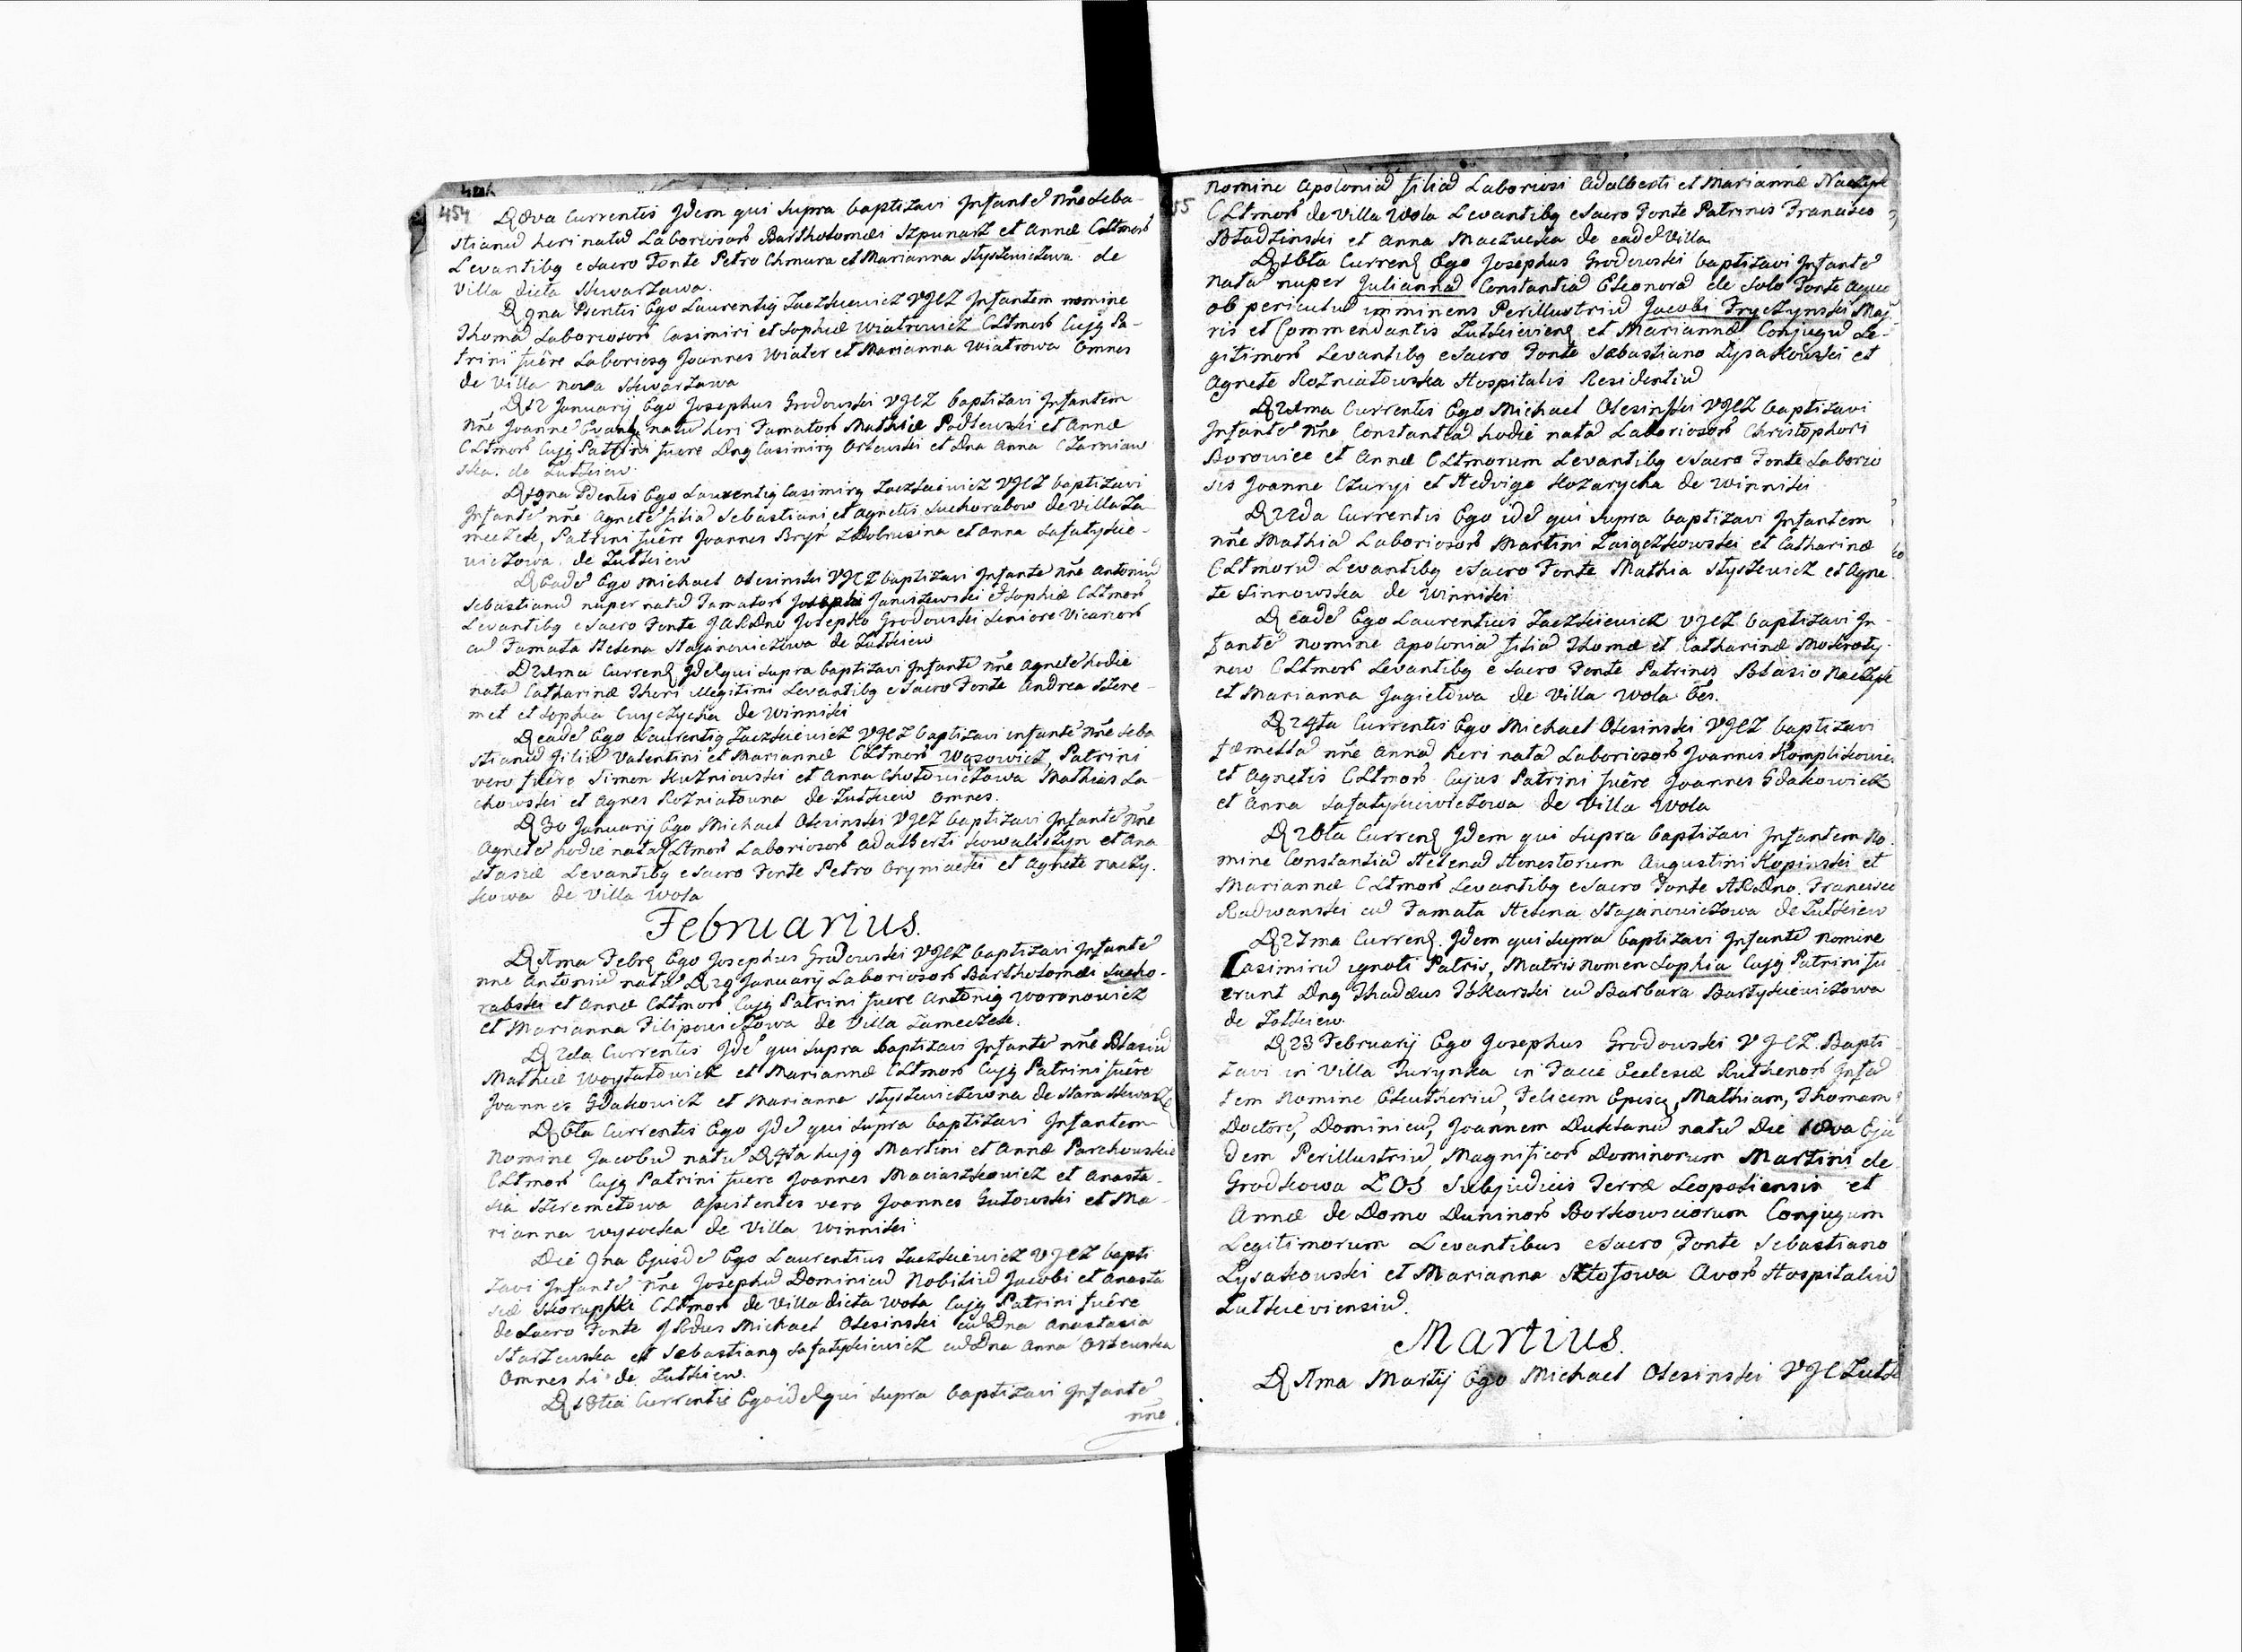 454
D 8va Currentis Jdem qui supra baptizavi Infantẽ nñe Seba-
stianũ heri natũ Laboriosorũ Bartholomæi Szpunarz et Annæ CLtmorũ
Levantibq eSacro Fonte Petro Chmura et Marianna Styszewiczowa de
Villa dicta Skwarzawa.
D 9na Psentis Ego Laurentiq Zaczkiewicz VJEZ Infantem nomine
Thomã Laboriosorũ Casimiri et Sophiæ Wiatrowicz CLtmorũ Cujq Pa-
trini fuêre Laboriosq Joannes Wiater et Marianna Wiatrowa Omnes
de Villa nova Skwarzawa
D 12 Januarij Ego Josephus Grodowski VJEZ baptizavi Infantem
Nñe Joannẽ Evang. natũ heri Famatorũ Mathiæ Podlewski et Annæ
CLtmorũ Cujq Patrini fuere Dnq Casimirq Orlewski et Dna Anna Czarniaw
ska. de Zułkiew.
D 19na Psentis Ego Laurentiq Casimirq Zaczkiewicz VJEZ baptizavi
Infantẽ nñe Agnetẽ filiã Sebastiani et Agnetis Suchorabow de Villa Za-
meczek, Patrini fuêre Joannes Bryń Zdolnisina et Anna Safatyskie-
wiczowa. de Zułkiew
D Eadẽ Ego Michael Olesinski VJEZ baptizavi Infantẽ Nñe Antoniũ
Sebastianũ nuper natũ Famatorũ Josephi Janiszewski et Sophiæ CLtmorũ
Levantibq eSacro Fonte JARDno Josepho Grodowski Seniore Vicariorũ
cũ Famata Helena Stojanowiczowa de Zułkiew
D 21ma Curren Jdẽ qui supra baptizavi Infantẽ nñe Agnetẽ hodie
natã Catharinæ Thori illegitimi Levantibq eSacro Fonte Andrea Szere-
met et Sophia Curyczycha de Winniki
D eadẽ Ego Laurentiq Zaczkiewicz VJEZ baptizavi infantẽ nñe Seba
stianũ filiũ Valentini et Mariannæ CLtmorũ Wąsowicz, Patrini
vero fuêre Simon Kuzniowski et Anna Chołowiczowa Mathias La-
chowski et Agnes Rozniatowna de Zułkiew omnes.
D 30 Januarij Ego Michael Olesinski VJEZ baptizavi Infantẽ Nñe
Agnetẽ hodie natã CLtmorũ Laboriosorũ Adalberti Kowaliszyn et Ana
stasiæ Levantibq eSacro Fonte Petro Oryniacki et Agnete Naczy-
kowa de Villa Wola
Februarius.
D 1ma Febr Ego Josephus Grodowski VJEZ baptizavi Infantẽ
nñe Antoniũ natũ D 29 Januarij Laboriosorũ Bartholomæi Sucho-
rabski et Annæ CLtmorũ Cujq Patrini fuere Antoniq Woronowicz
et Marianna Filipowiczowa de Villa Zameczek.
D 2da Currentis Jdẽ qui supra baptizavi Infantẽ nñe Blasiũ
Mathiæ Woytułowicz et Mariannæ CLtmorũ Cujq Patrini fuêre
Joannes Gdakowicz et Marianna Styszewiczowna de Stara Skwarz
D 6ta Currentis Ego Jdẽ qui supra baptizavi Infantem
Nomine Jacobũ natũ D 4ta hujq Martini et Annæ Parchowskie
CLtmorũ Cujq Patrini fuere Joannes Maciaszkowicz et Anasta-
sia Szeremetowa Assistentes vero Joannes Gutowski et Ma-
rianna Wysocka de Villa Winniki
Die 9na Ejusdẽ Ego Laurentius Zaczkiewicz VJEZ bapti
zavi Infantẽ Nñe Josephũ Dominicũ Nobiliũ Jacobi et Anasta
siæ Skorupski CLtmorũ de Villa dicta Wola Cujq Patrini fuêre
de Sacro Fonte JRdus Michael Olesinski cũ Dna Anastasia
Starzewska et Sebastianq Safatyskiewicz cũ Dna Anna Orlewska
Omnes hi de Zułkiew.
D 13tia Currentis Ego idẽ qui supra baptizavi Infantẽ
nñe
55
Nomine Apoloniã filiã Laboriosi Adalberti et Mariannæ Naczyk
CLtmorũ de Villa Wola Levantibq eSacro Fonte Patrinis Francisco
Bładzinski et Anna Maczucka de eadẽ Villa
D 16ta Curren Ego Josephus Grodowski baptizavi Infantẽ
natã nuper Juliannã Constantiã Eleonorã de Solo Fonte Aquæ
ob periculũ imminens Perillustriũ Jacobi Fryczynski Maj
ris et Commendantis Zułkievien et Mariannæ Conjugũ Le-
gitimorũ Levantibq eSacro Fonte Sebastiano Lysakowski et
Agnete Rozniatowska Hospitalis Residentiũ
D 21ma Currentis Ego Michael Olesinski VJEZ baptizavi
Infantẽ Nñe Constantiã hodie natã Laboriosorũ Christophori
Borowiec et Annæ CLtmorum Levantibq eSacro Fonte Laborio
sis Joanne Czuryj et Hedvige Kozarycha de Winniki
D 22da Currentis Ego idẽ qui supra baptizavi Infantem
nñe Mathiã Laboriosorũ Martini Zaigczkowski et Catharinæ
CLtmorũ Levantibq eSacro Fonte Mathia Styszewicz et Agne
te Sinnowska de Winniki
D eadẽ Ego Laurentius Zaczkiewicz VJEZ baptizavi In-
fantẽ nomine Apoloniã filiã Thomæ et Catharinæ Mokroty-
now CLtmorũ Levantibq e Sacro Fonte Patrinis Blasio Naczyk
et Marianna Jagiełowa de Villa Wola oẽs.
D 24ta Currentis Ego Michael Olesinski VJEZ baptizavi
fæmellã nñe Annã heri natã Laboriosorũ Joannis Komplikowic
et Agnetis CLtmorũ Cujus Patrini fuêre Joannes Gdakowicz
et Anna Safatyskiewiczowa de Villa Wola
D 26ta Curren Jdem qui supra baptizavi Infantem No
mine Constantiã Helenã Honestorum Augustini Kopinski et
Mariannæ CLtmorũ Levantibq eSacro Fonte ARDno. Francisco
Radwanski cũ Famata Helena Stojanowiczowa de Zułkiew
D 27ma Curren. Jdem qui supra baptizavi Infantẽ nomine
Casimirũ ignoti Patris, Matris nomen Sophia Cujq Patrini fu
erunt Dnq Thadæus Iskarski cũ Barbara Bartyskiewiczowa
de Żołkiew.
D 23 Februarij Ego Josephus Grodowski VJEZ. Bapti
zavi in Villa Turynka in Facie Ecclesiæ Ruthenorũ Infã
tem Nomine Eleutheriũ, Felicem Episc, Mathiam, Thomam
Doctorẽ, Dominicũ, Joannem Duklanũ natũ Die 18va Eju
dem Perillustriũ, Magnificorũ Dominorum Martini de
Grodkowa ŁOS Subjudicis Terræ Leopoliensis et
Annæ de Domo Duninorũ Borkowsciorum Conjugum
Legitimorum Levantibus eSacro Fonte Sebastiano
Lysakowski et Marianna Ktofowa Avorũ Hospitaliũ
Zułkieviensiũ.
Martius.
D 1ma Martij Ego Michael Olesinski VJEZułk